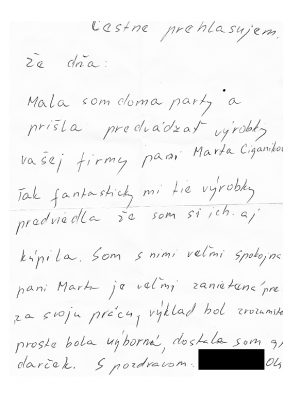 Čestne prehlasujem.
že dňa:
Mala som doma party a
prišla predvádzať výrobky
vašej firmy pani Marta Ciganikov
Tak fantasticky mi tie výrobky
predviedla že som si ich aj
kúpila. Som s nimi veľmi spokojna
pani Marta je veľmi zanietená pre
za svoju prácu, výklad bol zrozumite
proste bola výborná, dostala som aj
darček. S pozdravom: